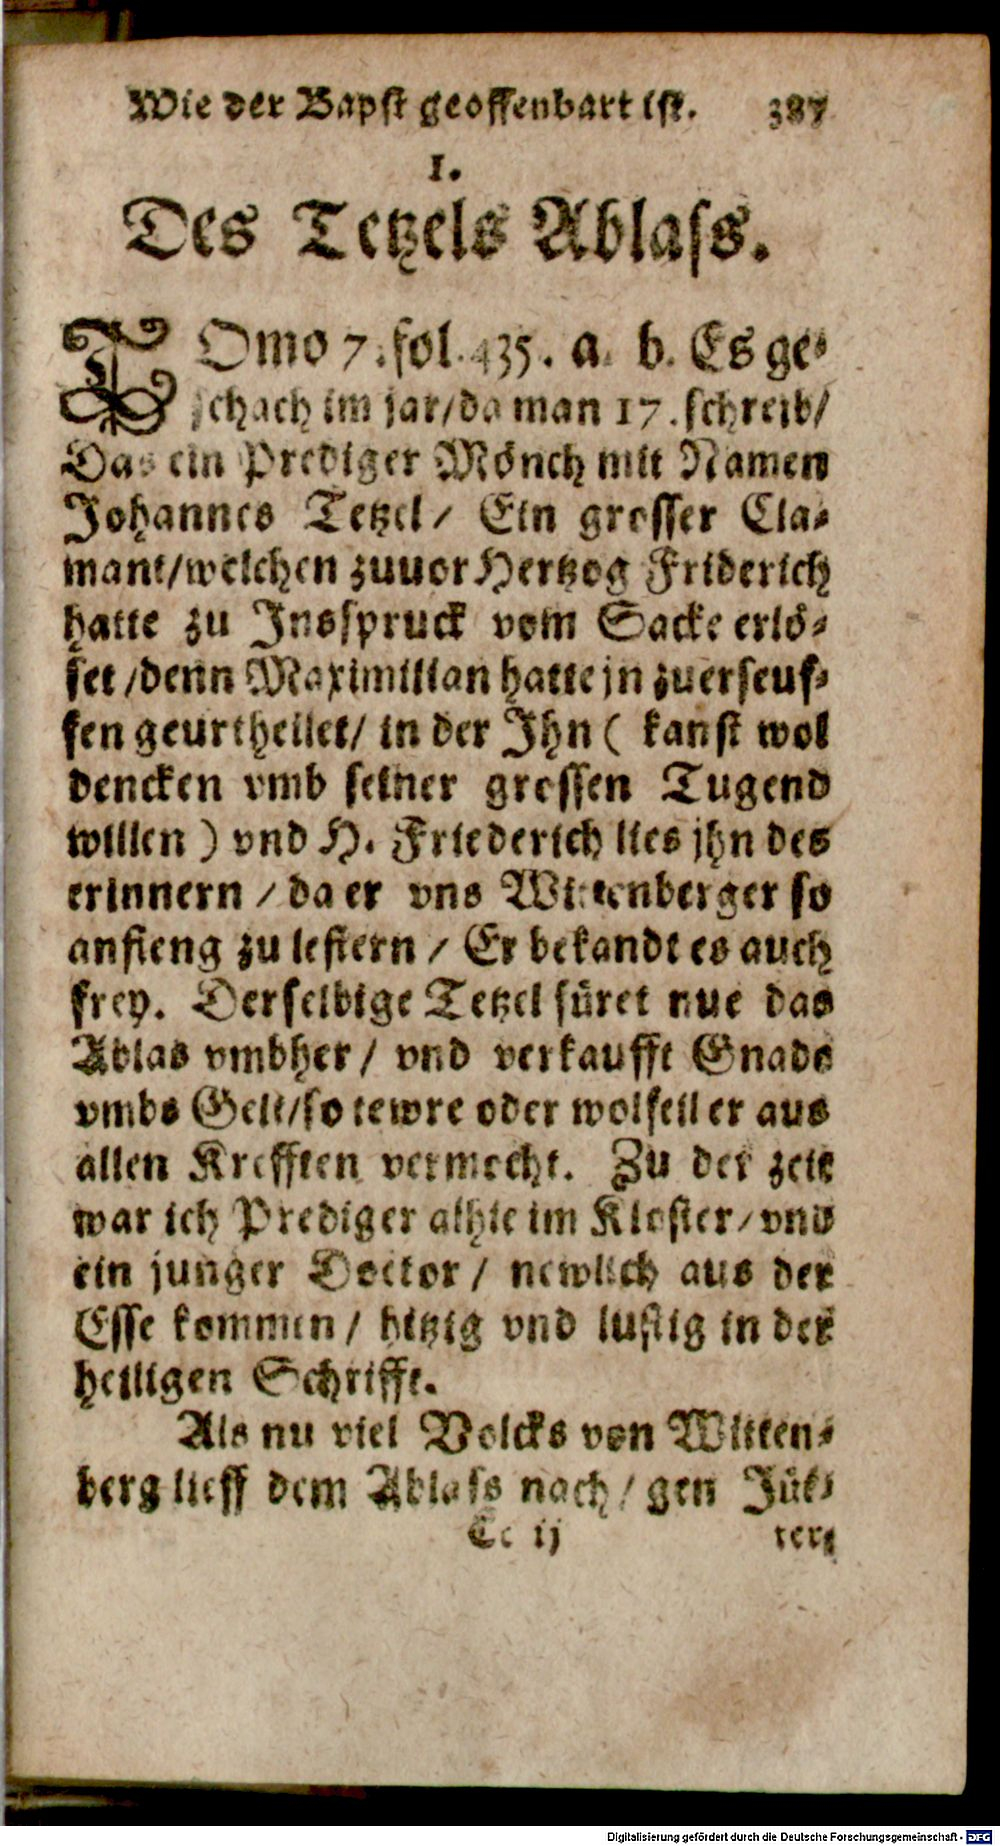 Wie der Bapst geoffenbart ist. 387
I.
Des Tetzels Ablass.
TOmo 7. fol. 435. a. b. Es ge-
schach im jar/da man 17. schreib/
Das ein Prediger Mönch mit Namen
Johannes Tetzel/ Ein grosser Cla-
mant/welchen zuuor Hertzog Friderich
hatte zu Insspruck vom Sacke erlö-
set/denn Maximilian hatte jn zuerseuf-
fen geurtheilet/ in der Ihn ( kanst wol
dencken vmb seiner grossen Tugend
willen ) vnd H. Friederich lies jhn des
erinnern / da er vns Wittenberger so
anfieng zu lestern / Er bekandt es auch
frey. Derselbige Tetzel füret nue das
Ablas vmbher/ vnd verkaufft Gnade
vmbs Gelt/so tewre oder wolfeil er aus
allen Krefften vermocht. Zu der zeit
war ich Prediger alhie im Kloster/vnd
ein junger Doctor/ newlich aus der
Esse kommen/ hitzig vnd lustig in der
heiligen Schrifft.
Als nu viel Volcks von Witten-
berg lieff dem Ablass nach/ gen Jüt-
Cc ij ter-
Digitalisierung gefördert durch die Deutsche Forschungsgemeinschaft - DFG